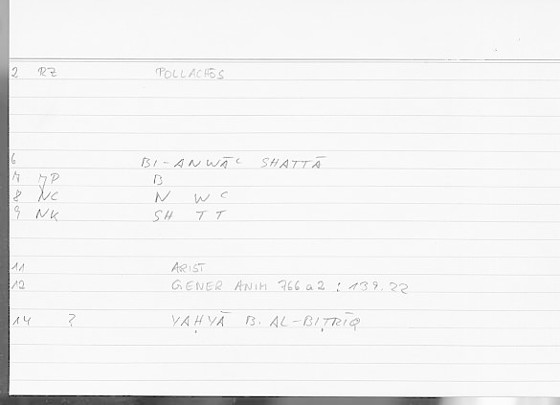 2 RZ POLLACHŌS
6 BI-ANWĀC SHATTĀ
7 MP B
8 NC N W C
9 NK SH T T
11 ARIST
12 GENER ANIM 766a2 : 139.22
14 ? YAḤYĀ B. AL-BIṬRĪQ